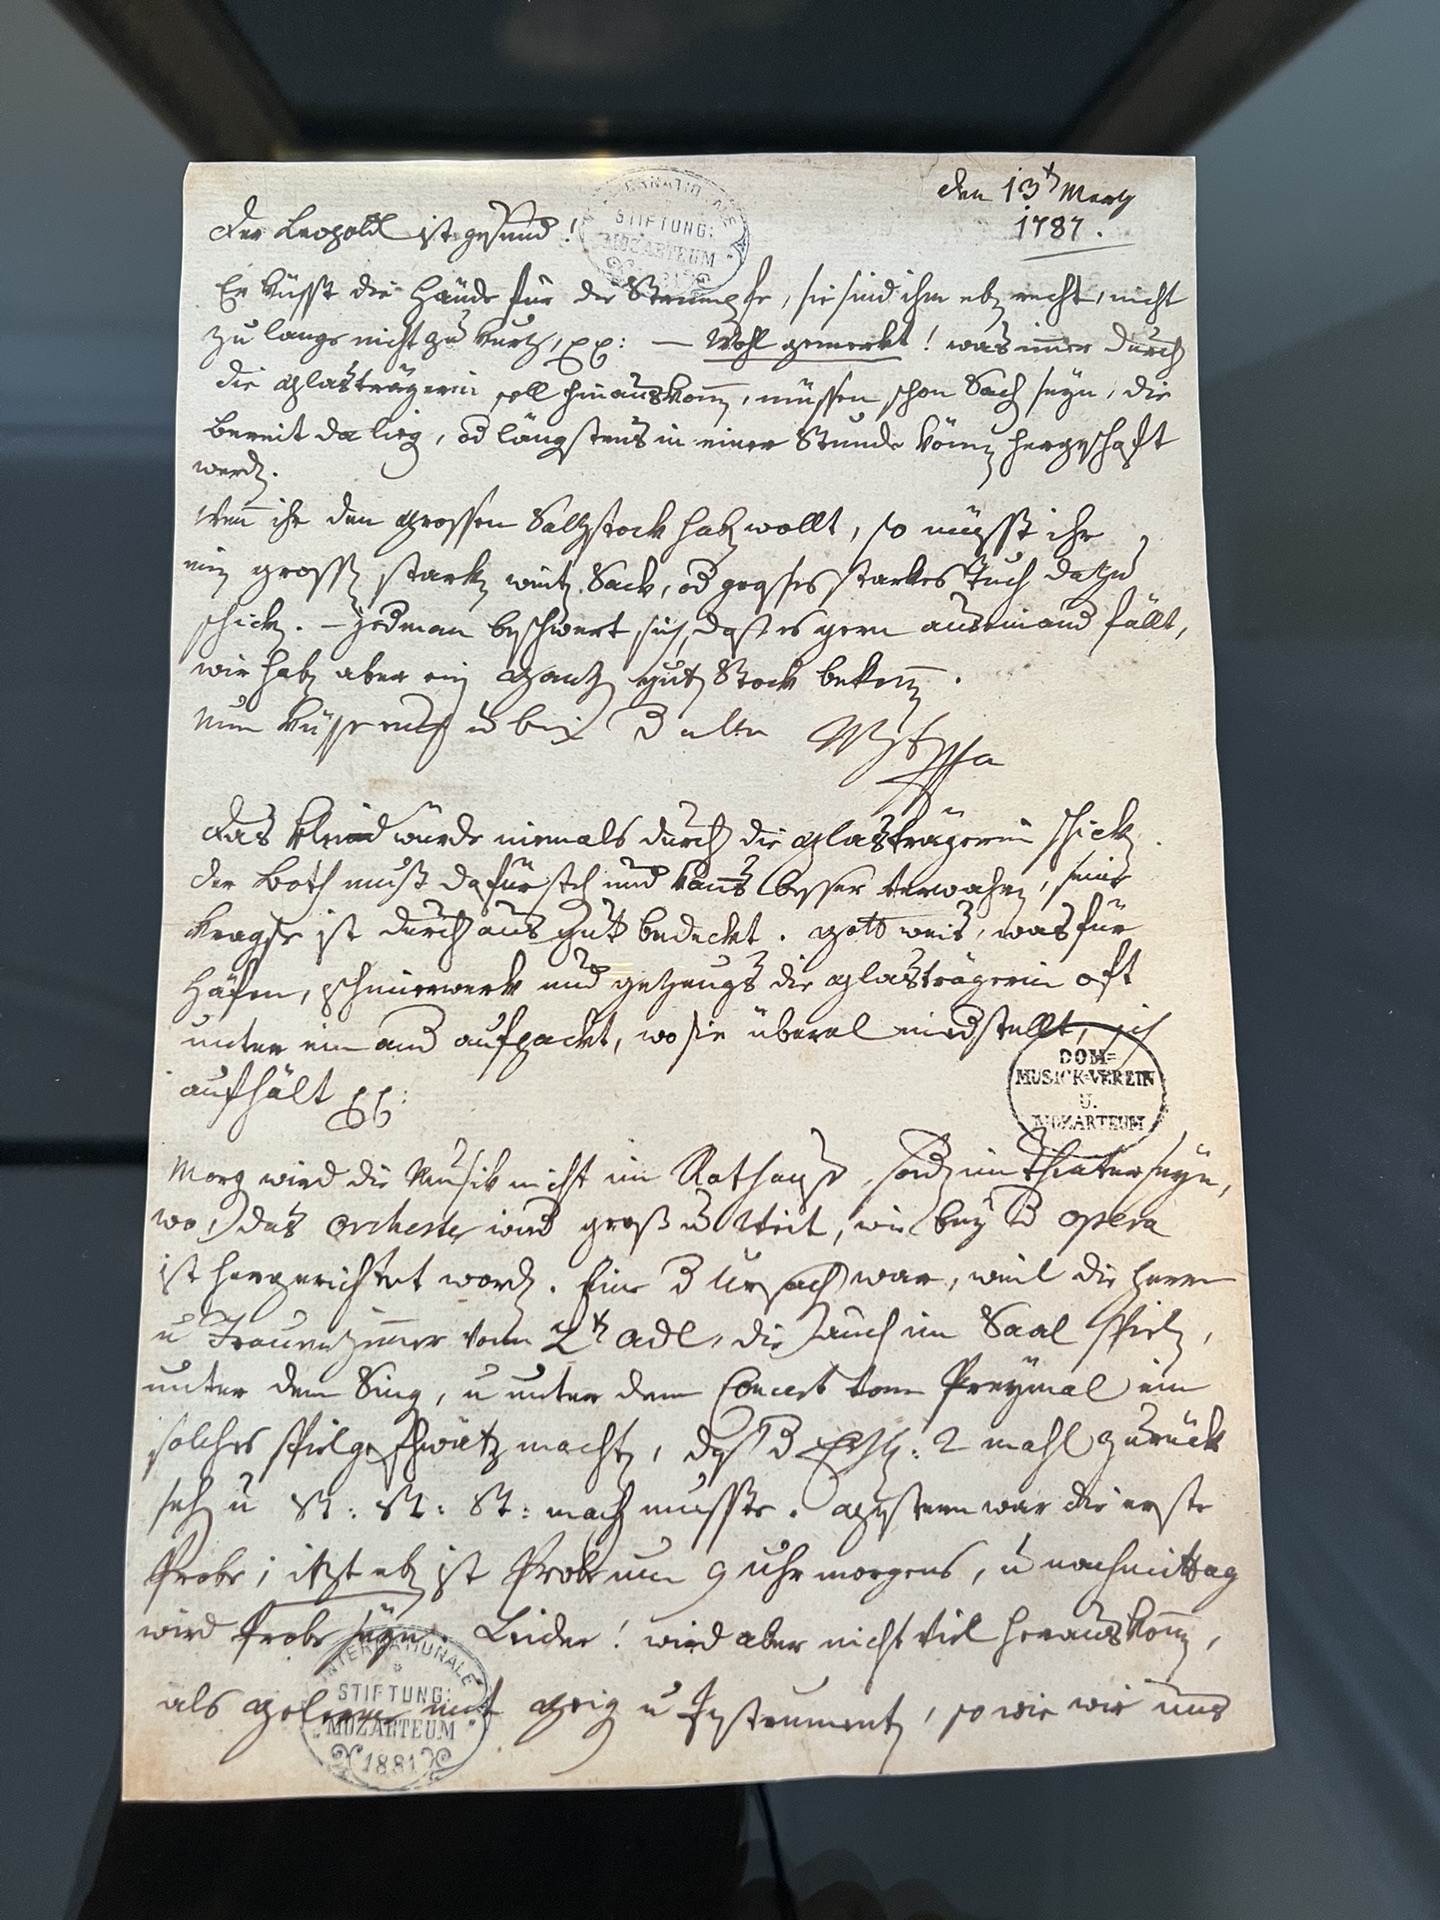 den 13t Merz
1787.
Der Leopoldl ist gesund!
INTERNATIONALE
STIFTUNG:
"MOZARTEUM"
1881
Er küsst die Hände für die Strümpfe, sie sind ihm eben recht, nicht
zu lange nicht zu kurz, pp: — Wohl gemerkt! was immer durch
die glasträgerin soll hinauskomm, müssen schon Sach seyn, die
bereit da lieg, od längstens in einer Stunde könn hergeschaft
werd.
Wenn ihr den grossen Salzstock hab wollt, so müsst ihr
ein gross stark weit Sack, od grosses starkes Tuch dazu
schick. — jedman beschwert sich, dass es gern auseinand fällt,
wir hab aber ein ganz gut Stock bekomm.
Nun küsse euch u bin d alte Mzt
Das Kleid würde niemals durch die glasträgerin schick.
der Both muß dafür steh und kanns besser verwahrn, seine
ist durchaus gut bedeckt. gott weis, was für
Häfen, schmierwerk und gezeugs die glasträgerin oft
unter einand aufpackt, wo sie überal niedstellt, sich
aufhält pp:
DOM=
MUSICK=VEREIN
U.
MOZARTEUM
Morg wird die Musik nicht im Rathause, sond im Theater seyn,
wo das Orchester wird groß u Weit, wie bey d opera
ist hergerichtet word. Eine d Ursach war, weil die Herrn
u Frauenzimmer vom 2t adl, die auch im Saal spiel,
unter dem Sing, u unter dem Concert vom Preymal ein
solches spielgeschwätz macht, daß d Erzb: 2 mahl zurück
seh u St: St: St: mach musste. gestern war die erste
Probe; itzt eb ist Probe um 9 uhr morgens, u nachmittag
wird Probe seyn. Leider! wird aber nicht viel herauskomm,
als mit geig u Instrument, so wie wir uns
INTERNATIONALE
STIFTUNG:
"MOZARTEUM"
1881